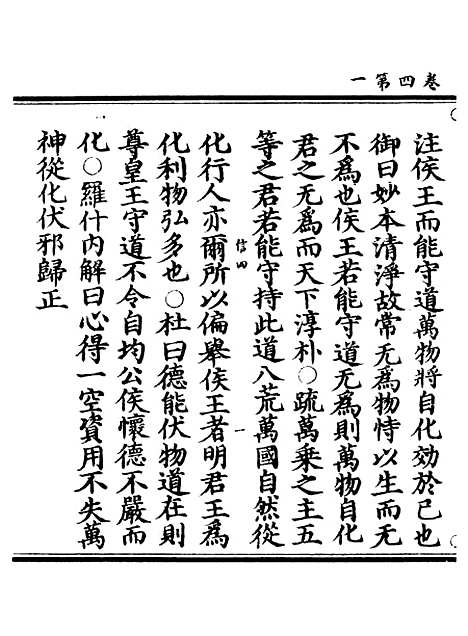 卷四第一
注侯王而能守道萬物將自化効於已也
御曰妙本清淨故常无爲物恃以生而无
不爲也侯王若能守道无爲則萬物自化
君之无爲而天下淳朴○疏萬乗之主五
等之君若能守持此道八荒萬國自然從
信四
一
化行人亦爾所以偏舉侯王者明君王爲
化利物弘多也○杜曰德能伏物道在則
尊皇王守道不令自均公侯懷德不嚴而
化○羅什内解曰心得一空資用不失萬
神從化伏邪歸正